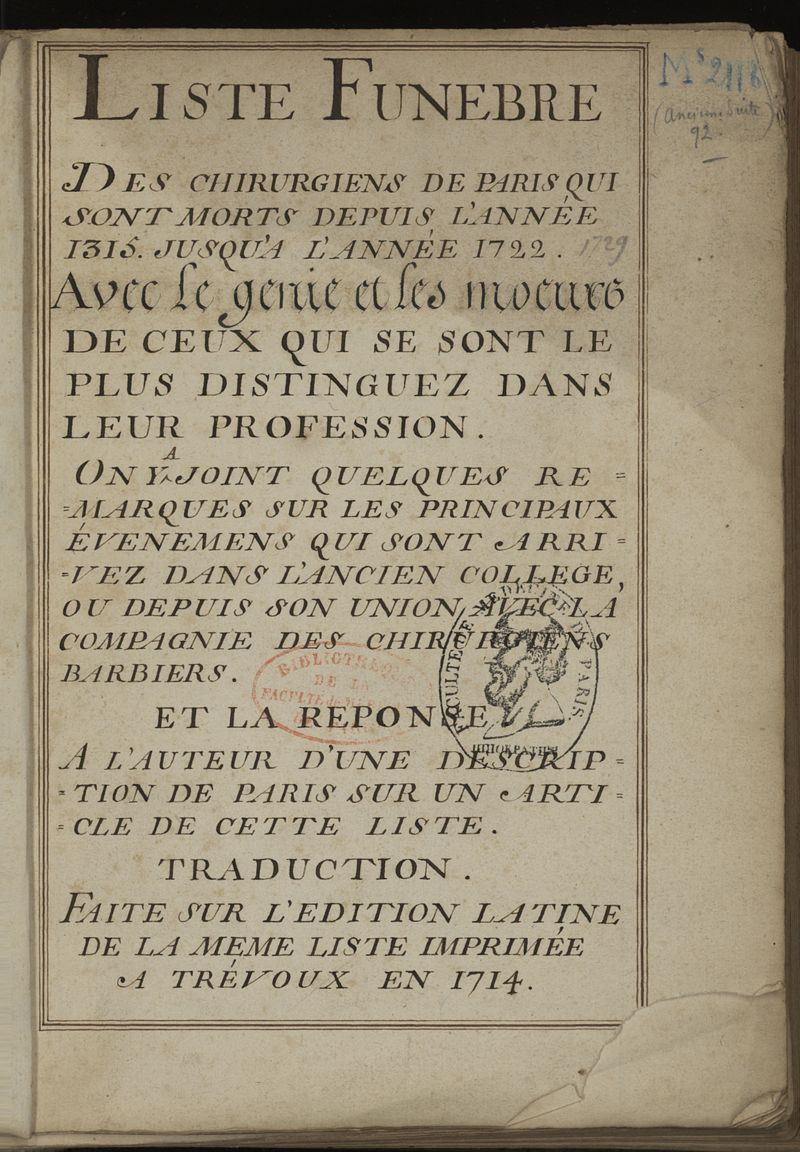 LISTE FUNEBRE
DES CHIRURGIENS DE PARIS QUI
SONT MORTS DEPUIS L'ANNÉE
1315. JUSQU'A L'ANNÉE 1722. 1729
Avec le genie et les moeurs
DE CEUX QUI SE SONT LE
PLUS DISTINGUEZ DANS
LEUR PROFESSION.
A
ON Y JOINT QUELQUES RE =
=MARQUES SUR LES PRINCIPAUX
ÉVENEMENS QUI SONT ARRI =
=VEZ DANS L'ANCIEN COLLEGE,
OU DEPUIS SON UNION AVEC LA
COMPAGNIE DES CHIRURGIENS
BARBIERS.
ET LA REPONSE
A L'AUTEUR D'UNE DESCRIP =
= TION DE PARIS SUR UN ARTI =
= CLE DE CETTE LISTE.
TRADUCTION.
FAITE SUR L'EDITION LATINE
DE LA MÉME LISTE IMPRIMÉE
A TRÉVOUX EN 1714.
Ms 2118
(Ancienne Suite)
92.
BIBLIOTHEQUE
DE LA
FACULTÉ
FACULTÉ DE
PARIS